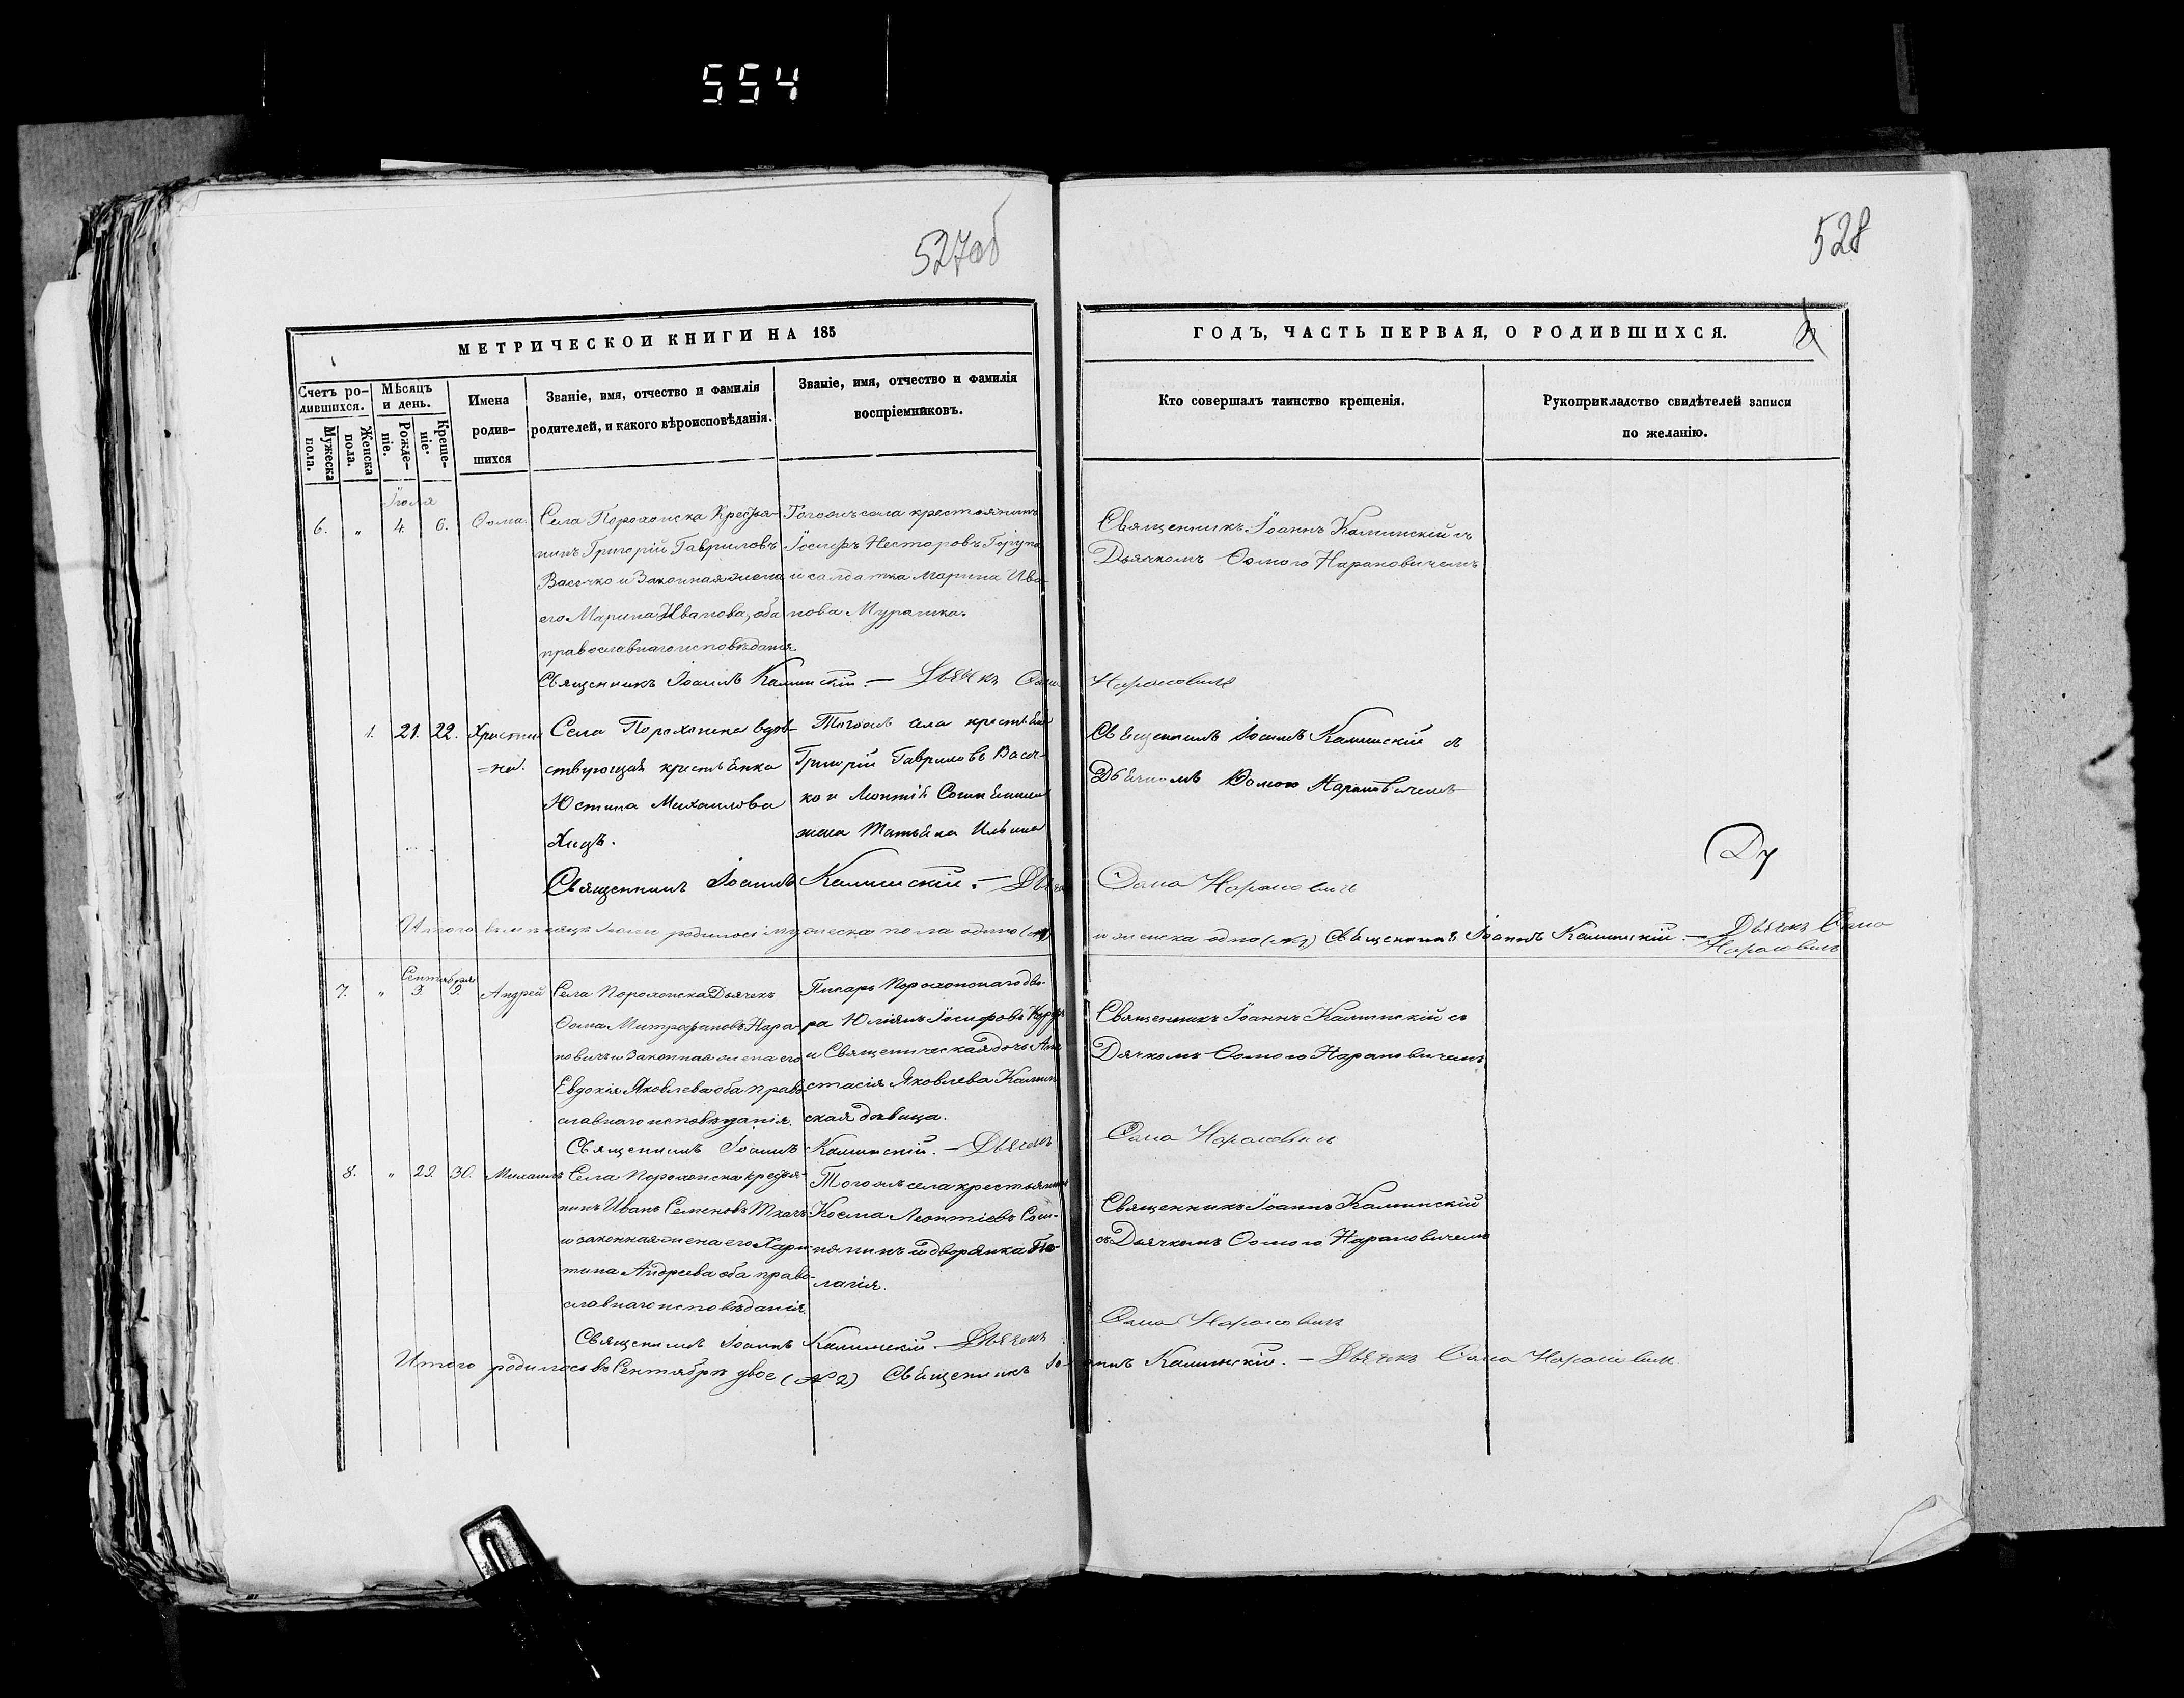 554
527об
528
МЕТРИЧЕСКОЙ КНИГИ НА 185
ГОДЪ, ЧАСТЬ ПЕРВАЯ, О РОДИВШИХСЯ.
Счетъ ро-
дившихся.
Мужеска
пола.
Женска
пола.
Мѣсяцъ
и день.
Рожде-
ніе.
Креще-
ніе.
Имена
родив-
шихся
Званіе, имя, отчество и фамилія
родителей, и какого вѣроисповѣданія.
Званіе, имя, отчество и фамилія
воспріемниковъ.
Кто совершалъ таинство крещенія.
Рукоприкладство свидѣтелей записи
по желанію.
Іюля
6. " 4. 6. Ѳома.
Села Порохонска Крестья-
нинъ Григорій Гавриловъ
Васечко и Законная жена
его Марина Иванова, оба
православнаго исповѣданія.
Тогожъ села крестьянинъ
Іосифъ Несторовъ
и салдатка Марина Ива-
нова Мурашка.
Священникъ Іоаннъ Калинскій съ
Дьячкомъ Ѳомою Нарановичемъ
Священникъ Іоаннъ Калинскій. — Дьячекъ Ѳома Нарановичъ
1. 21. 22. Христи
=на.
Села Порохонска вдов-
ствующая крестьянка
Юстина Михаилова
Хицъ.
Тогожъ села крестьян
Григорій Гавриловъ Васеч-
ко и Леонтія
жена Татьяна Ильина
Священникъ Іоаннъ Калинскій съ
Дьячкомъ Ѳомою Нарановичемъ
Священникъ Іоаннъ Калинскій. — Дьячекъ Ѳома Нарановичъ
Итого въ мѣсяцѣ Іюли родилось мужеска пола одинъ (№1) и женска одно (№1) Священникъ Іоаннъ Калинскій. — Дьячекъ Ѳома
Нарановичъ
Сентября
7. " 3. 9. Андрей
Села Порохонска Дьячекъ
Ѳома Митрофановъ Нара-
новичъ и Законная жена его
Евдокія Яковлева оба право-
славнаго исповѣданія.
Писарь Порохонскаго дво-
ра Юліянъ Іосифовъ
и Священическая дочь Ана
стасія Яковлева Калин
ская дѣвица.
Священникъ Іоаннъ Калинскій съ
Дячкомъ Ѳомою Нарановичемъ
Священникъ Іоаннъ Калинскій. — Дьячекъ Ѳома Нарановичъ
8. " 29. 30. Михаилъ
Села Порохонска крестья-
нинъ Иванъ Семеновъ Ткачъ
и законная жена его Хари-
тина Андреева оба право-
славнаго исповѣданія.
Тогожъ села крестьянинъ
Косма Леонтіевъ Сош-
нянинъ и дворянка Пе-
лагія.
Священникъ Іоаннъ Калинскій
съ Дьячкомъ Ѳомою Нарановичемъ
Священникъ Іоаннъ Калинскій. — Дьячекъ Ѳома Нарановичъ
Итого родилось въ Сентябрѣ двое (№ 2) Священникъ Іоаннъ Калинскій. — Дьячекъ Ѳома Нарановичъ.